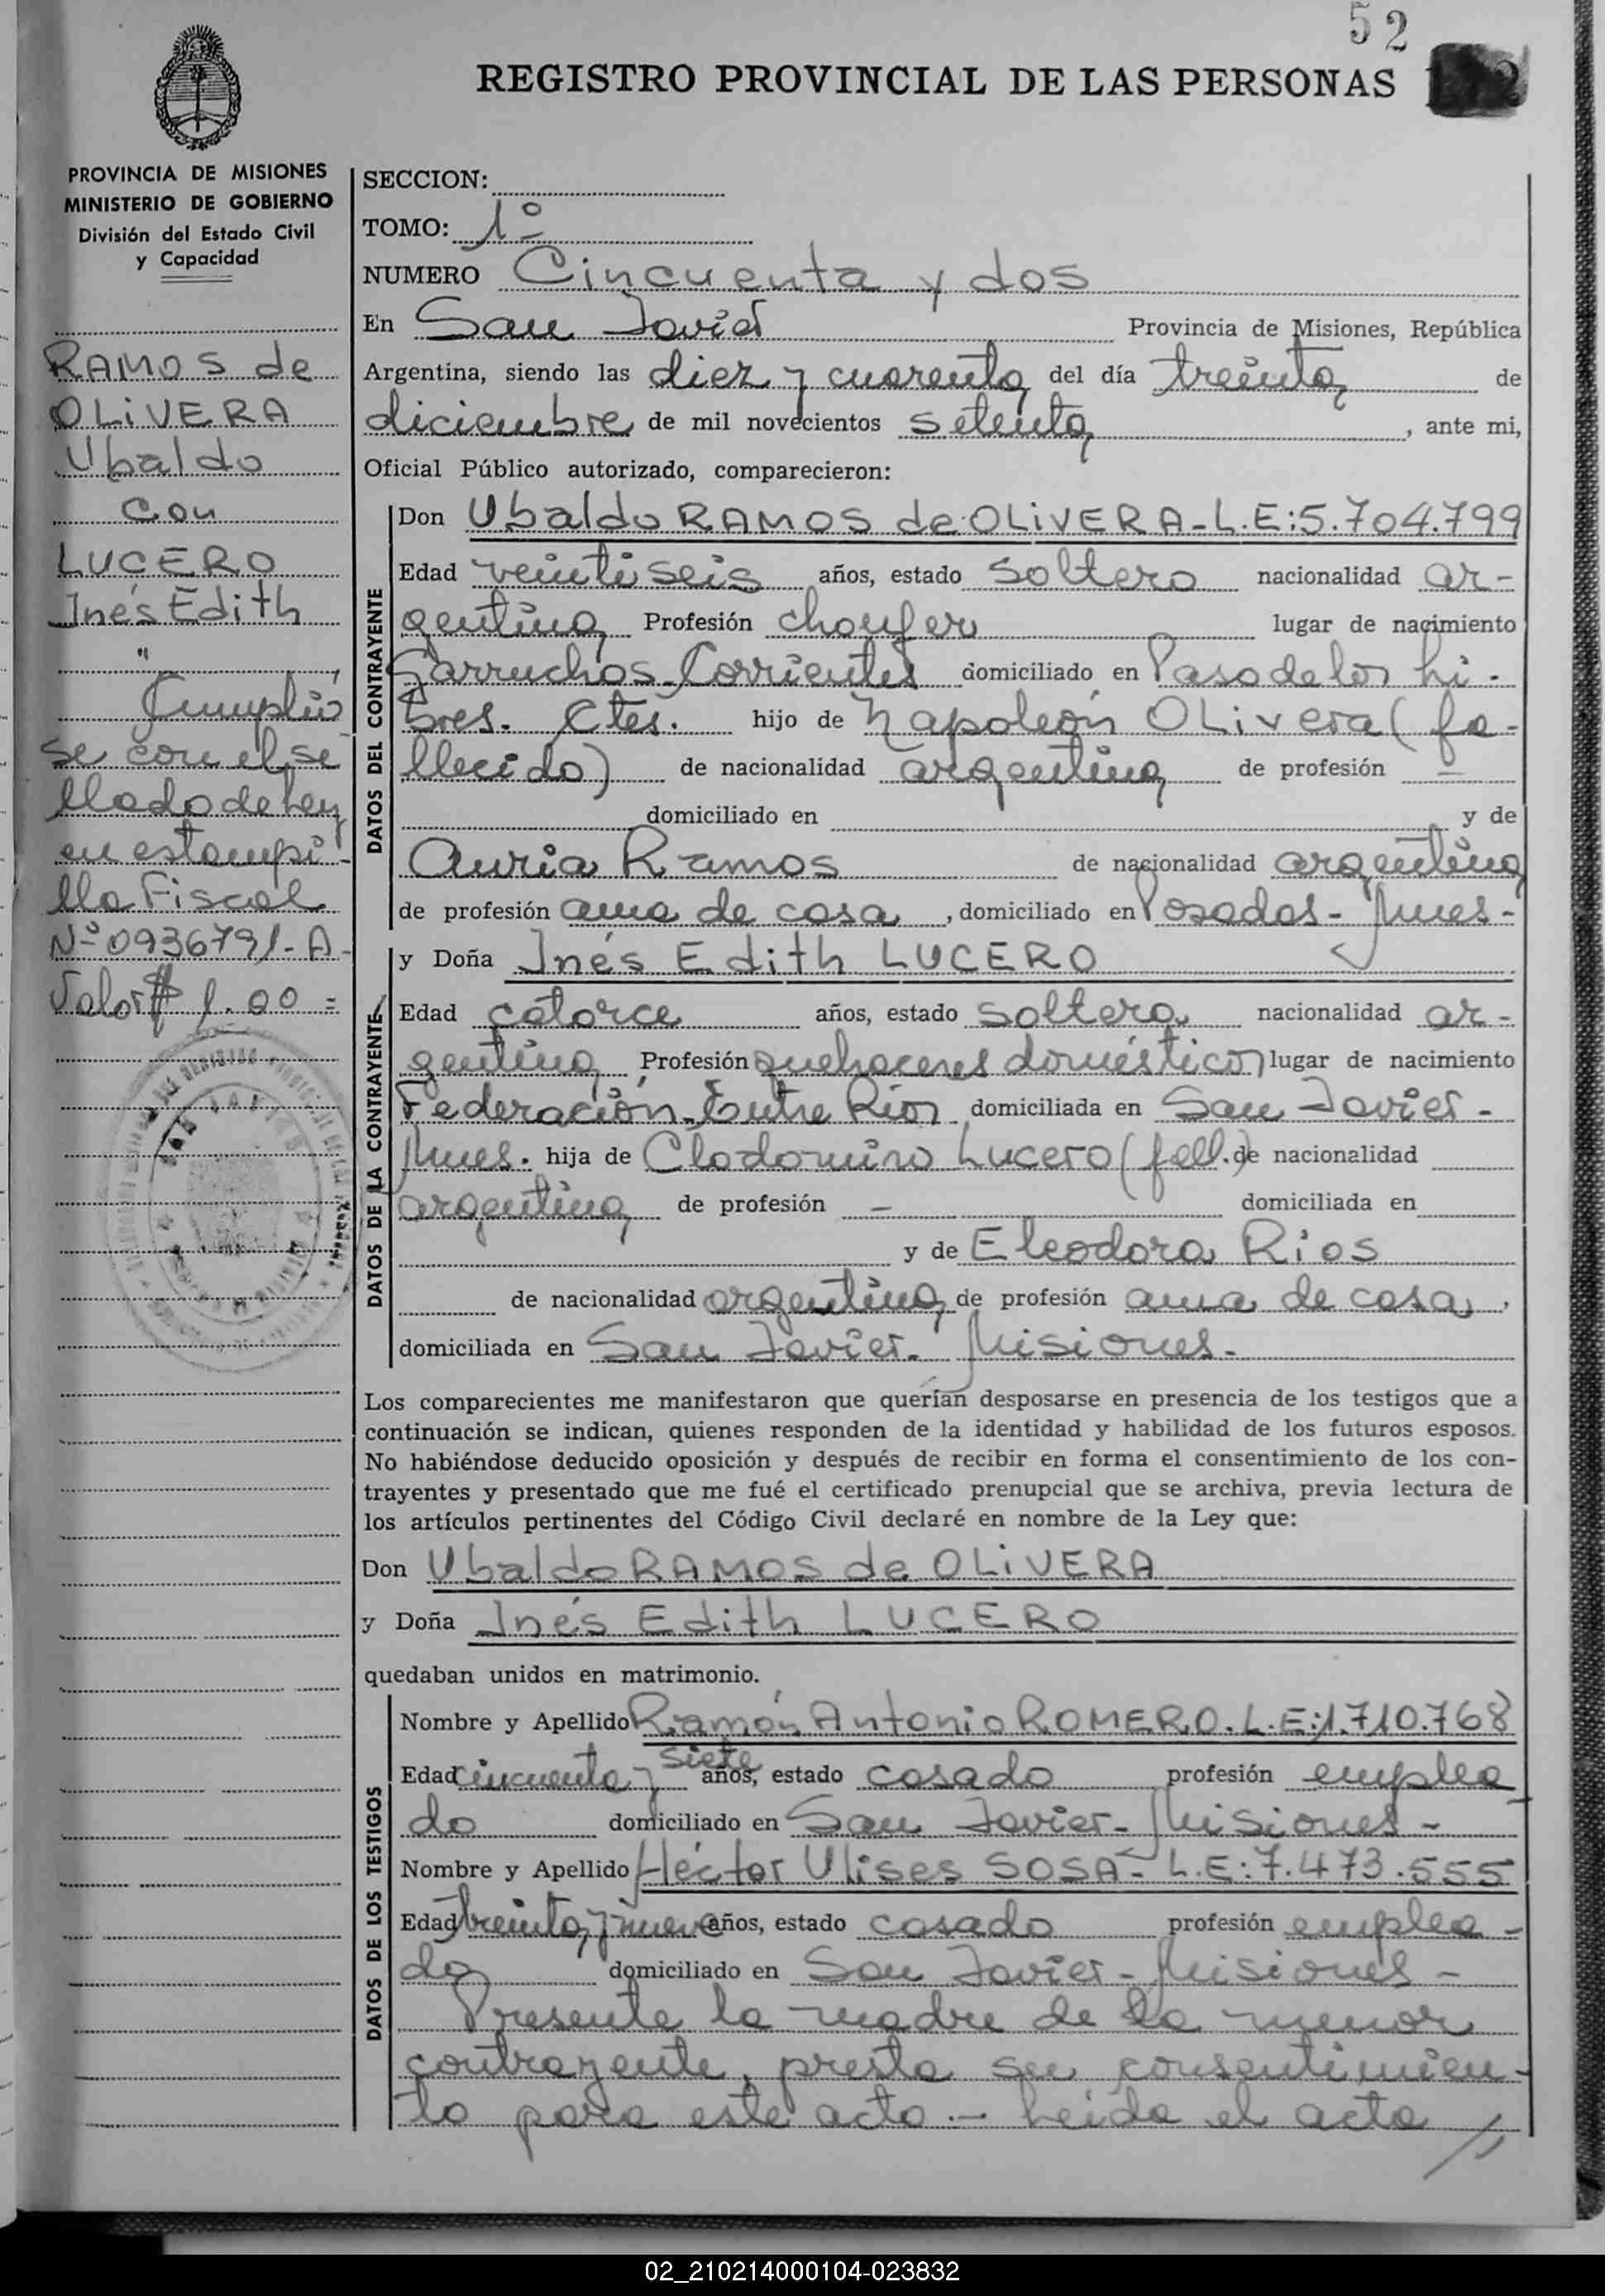 52
REGISTRO PROVINCIAL DE LAS PERSONAS
PROVINCIA DE MISIONES
MINISTERIO DE GOBIERNO
División del Estado Civil
y Capacidad
RAMOS de
OLIVERA
Ubaldo
con
LUCERO
Inés Edith
"
Cumplió
se con el se
llado de Ley
en estampi-
lla Fiscal
Nº 0936791-A-
Valor $ 1.00=
SECCION:
TOMO: 1º
NUMERO Cincuenta y dos
En San Javier Provincia de Misiones, República
Argentina, siendo las diez y cuarenta del día treinta de
diciembre de mil novecientos setenta, ante mi,
Oficial Público autorizado, comparecieron:
DATOS DEL CONTRAYENTE
Don Ubaldo RAMOS de OLIVERA-L.E:5.704.799
Edad veintiseis años, estado soltero nacionalidad ar-
gentina Profesión choufer lugar de nacimiento
Garruchos-Corrientes domiciliado en Paso de los Li-
bres. Ctes. hijo de Napoleón Olivera (fa-
llecido) de nacionalidad argentina de profesión —
domiciliado en y de
Auria Ramos de nacionalidad argentina
de profesión ama de casa, domiciliado en Posadas-Mnes-
DATOS DE LA CONTRAYENTE
y Doña Inés Edith LUCERO
Edad catorce años, estado soltera nacionalidad ar-
gentina Profesión quehaceres domésticos lugar de nacimiento
Federación-Entre Ríos domiciliada en San Javier-
Mnes. hija de Clodomiro Lucero (fall.) de nacionalidad
argentina de profesión — domiciliada en
y de Eleodora Rios
de nacionalidad argentina de profesión ama de casa,
domiciliada en San Javier- Misiones-
Los comparecientes me manifestaron que querían desposarse en presencia de los testigos que a
continuación se indican, quienes responden de la identidad y habilidad de los futuros esposos.
No habiéndose deducido oposición y después de recibir en forma el consentimiento de los con-
trayentes y presentado que me fué el certificado prenupcial que se archiva, previa lectura de
los artículos pertinentes del Código Civil declaré en nombre de la Ley que:
Don Ubaldo RAMOS de OLIVERA
y Doña Inés Edith LUCERO
quedaban unidos en matrimonio.
DATOS DE LOS TESTIGOS
Nombre y Apellido Ramón Antonio ROMERO. L.E:1.710.768
Edad cincuenta y siete años, estado casado profesión emplea
do domiciliado en San Javier- Misiones-
Nombre y Apellido Héctor Ulises SOSA- L.E:7.473.555
Edad treinta y nueve años, estado casado profesión emplea-
do domiciliado en San Javier- Misiones-
Presente la madre de la menor
contrayente, presta su consentimien-
to para este acto.- Leida el acta //
02_210214000104-023832